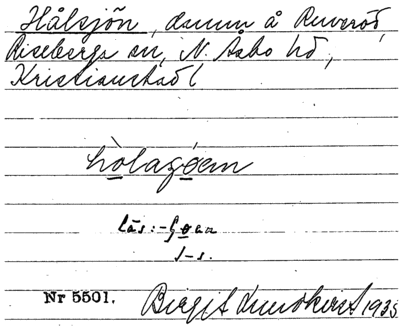 Hålsjön, damm å Ruveröd,
Riseberga sn, N. Åsbo hd,
Kristianstad l
hòlagóen
läs: -góen
s-s.
Nr 5501. Birgit Lundkvist 1935